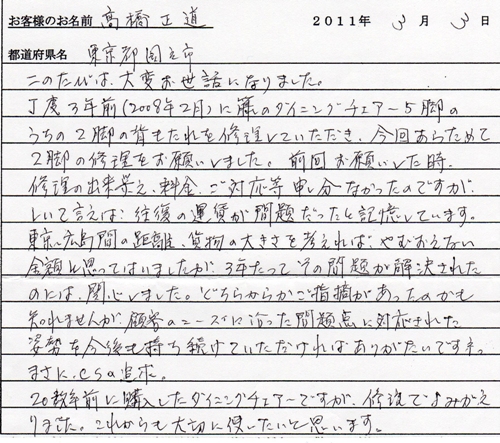 お客様のお名前 高橋正道 2011年 3月 3日
都道府県名 東京都国立市
このたびは、大変お世話になりました。
丁度3年前(2008年2月)に籐のダイニングチェアー5脚の
うちの2脚の背もたれを修理していただき、今回あらためて
2脚の修理をお願いしました。前回お願いした時、
修理の出来栄え、料金、ご対応等申し分なかったのですが、
しいて言えば、往復の運賃が問題だったと記憶しています。
東京、広島間の距離、貨物の大きさを考えれば、やむおえない
金額と思ってはいましたが、3年たってその問題が解決された
のには、関心しました。どちらからかご指摘があったのかも
知れませんが、顧客のニーズに沿った問題点に対応された
姿勢を今後も持ち続けていただければありがたいです
まさに、CSの追求。
20数年前に購入したダイニングチェアーですが、修理でよみがえ
りました。これからも大切に使いたいと思います。